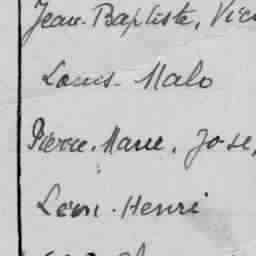 Jean-Baptiste, Vic
Louis-Malo
Pierre-Marie, Jose,
Léon-Henri